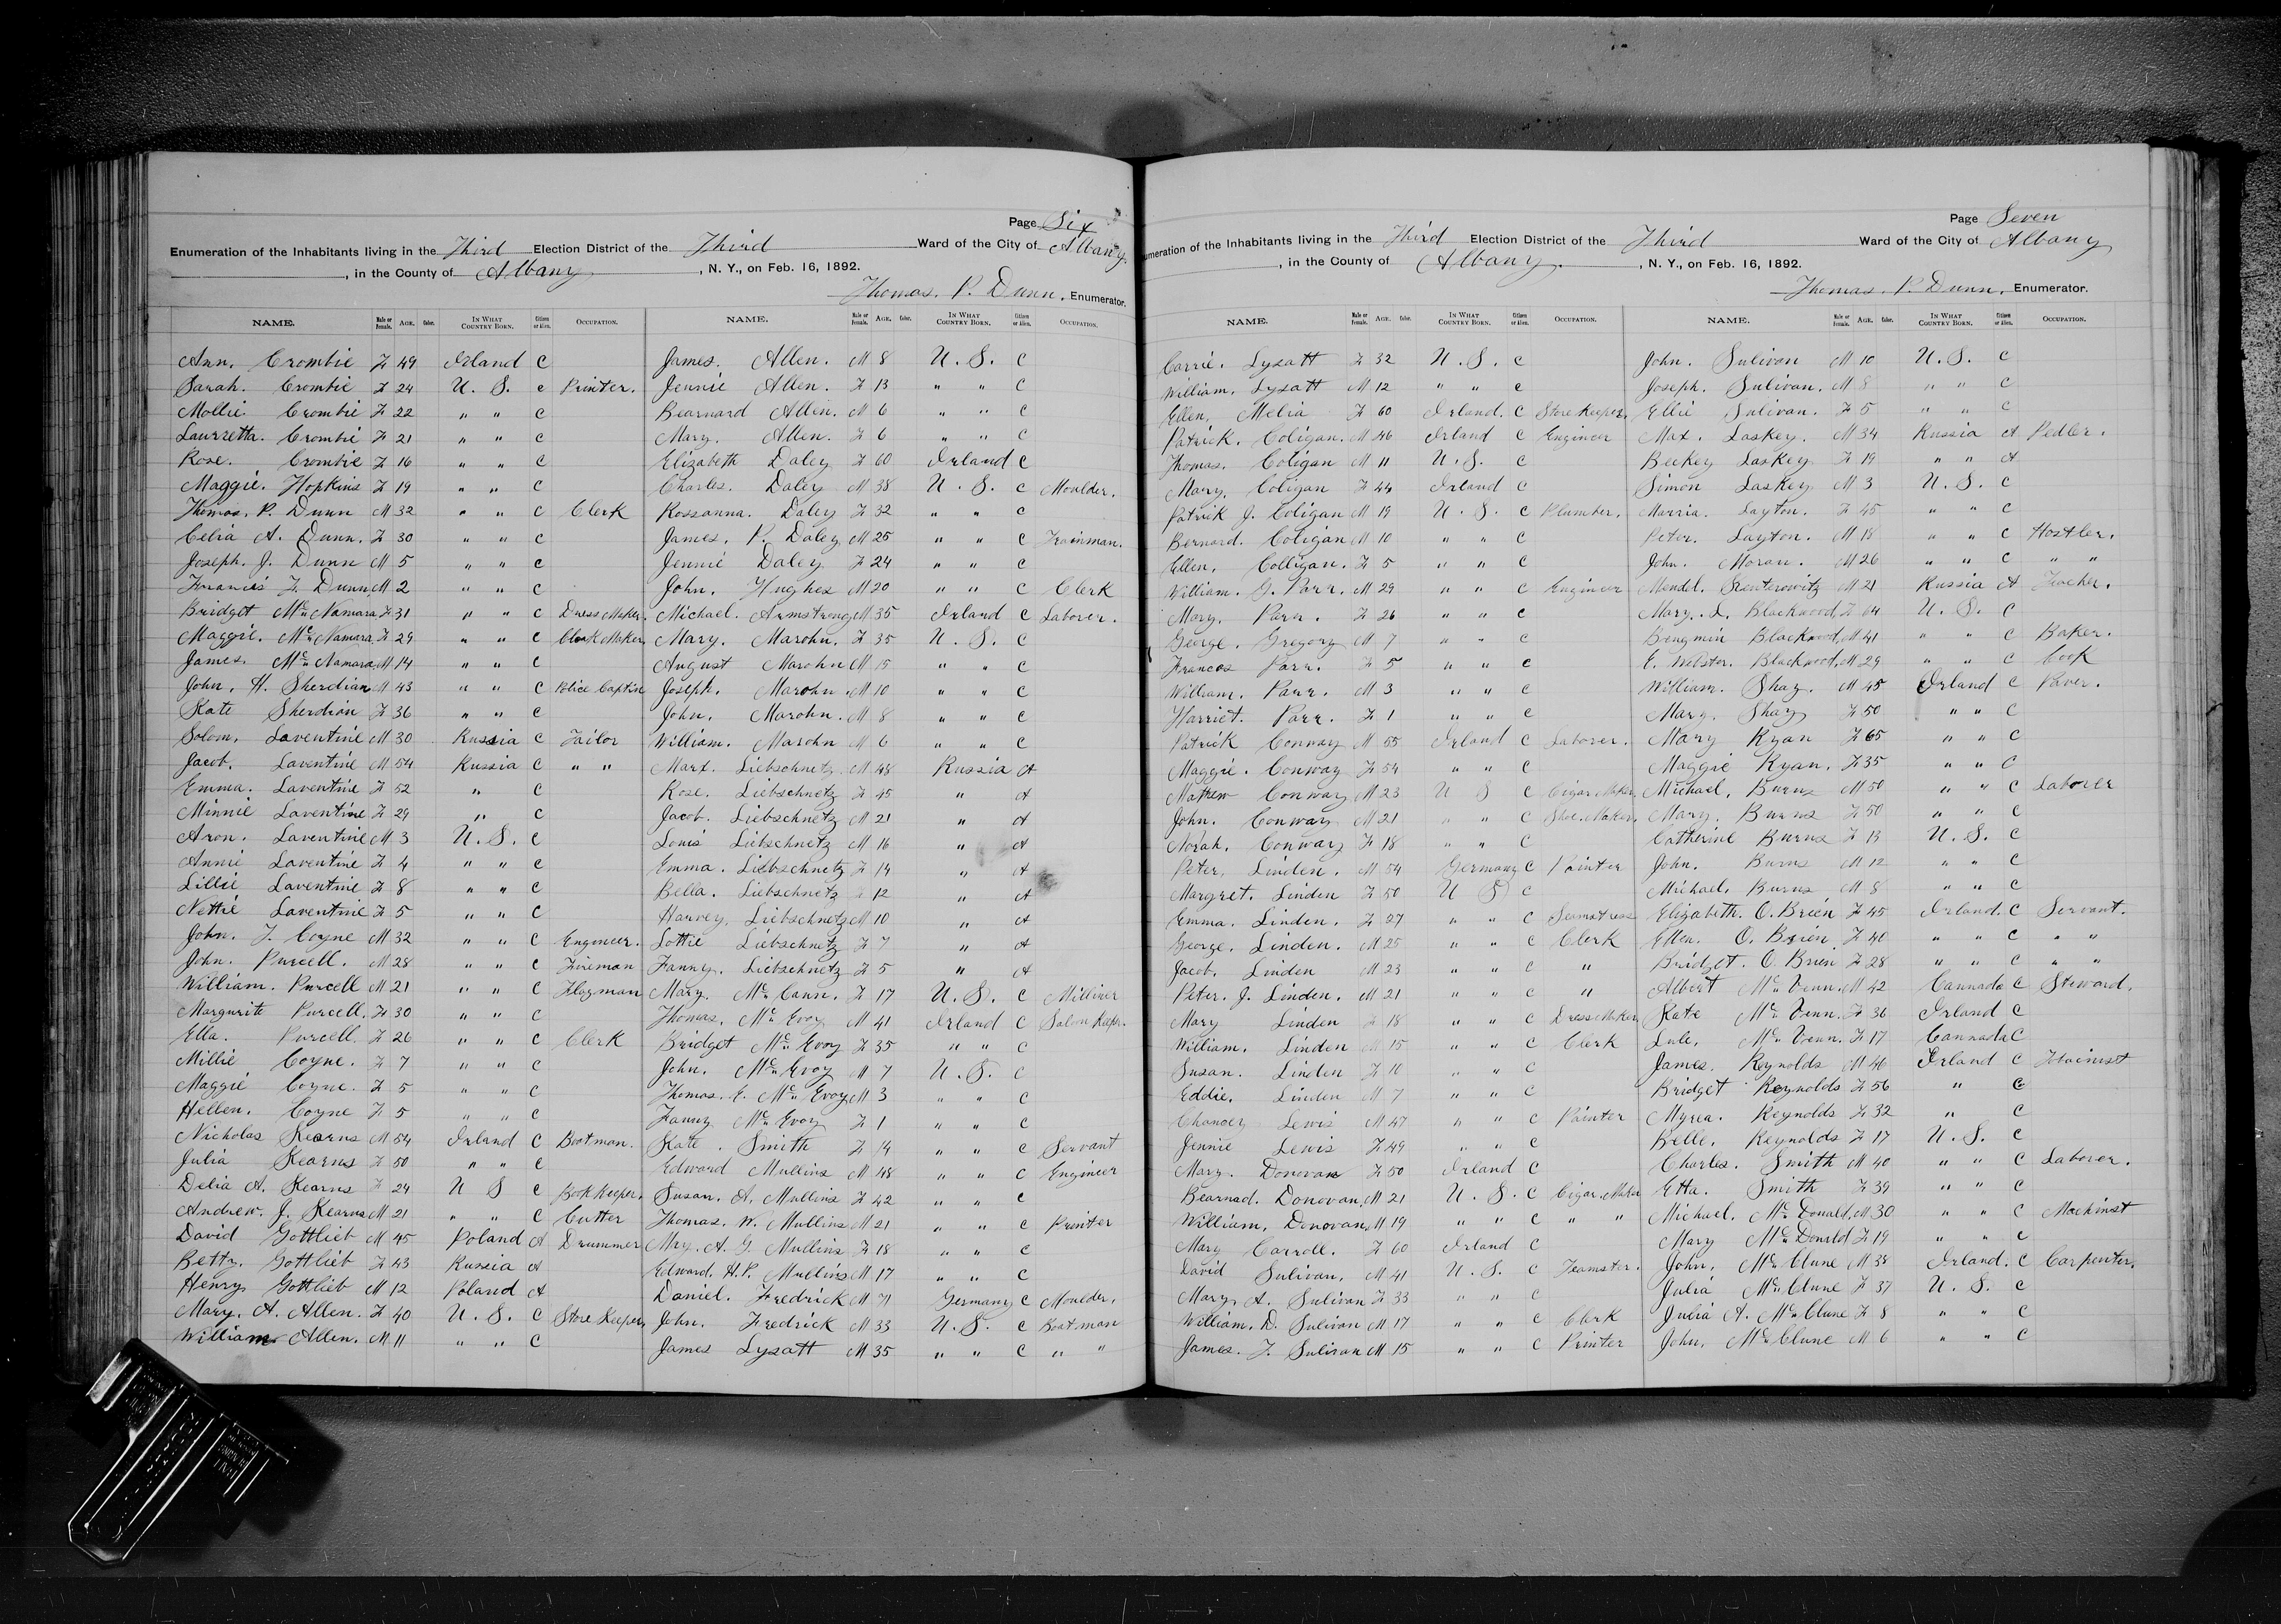 Page Six
Enumeration of the Inhabitants living in the Third Election District of the Third Ward of the City of Albany.
, in the County of Albany, N. Y., on Feb. 16, 1892.
Thomas. P. Dunn, Enumerator.
NAME. Male or Female. AGE. Color. IN WHAT COUNTRY BORN. Citizen or Alien. OCCUPATION.
Ann. Crombie F 49 Irland C
Sarah. Crombie F 24 U. S. C Printer.
Mollie. Crombie F 22 " " C
Laurretta. Crombie F 21 " " C
Rose. Crombie F 16 " " C
Maggie. Hopkins F 19 " " C
Thomas. P. Dunn M 32 " " C Clerk
Celia A. Dunn. F 30 " " C
Joseph. J. Dunn M 5 " " C
Francis F. Dunn. M 2 " " C
Bridget Mc Namara F 31 " " C Dress Maker.
Maggie. Mc Namara. F 29 " " C Cloak Maker
James. Mc Namara. M 14 " " C
John. H. Sherdian M 43 " " C Police Captin
Kate Sherdian F 36 " " C
Solom. Laventine M 30 Russia C Tailor
Jacob. Laventine M 54 Russia C " "
Emma. Laventine F 52 " C
Minnie Laventine F 29 " C
Aron. Laventine M 3 U. S. C
Annie Laventine F 4 " " C
Lillie Laventine F 8 " " C
Nettie Laventine F 5 " " C
John. J. Coyne M 32 " " C Engineer.
John. Purcell. M 28 " " C Fireman
William. Purcell M 21 " " C Flagman
Margurite Purcell. F 30 " " C
Ella. Purcell. F 26 " " C Clerk
Millie Coyne. F 7 " " C
Maggie Coyne. F 5 " " C
Hellen. Coyne F 5 " " C
Nicholas Kearns M 54 Irland C Bootman.
Julia Kearns F 50 " " C
Delia A. Kearns F 24 U S C Book Keeper.
Andrew. J. Kearns M 21 " " C Cutter
David Gottlieb M 45 Poland A Drummer
Betty. Gottlieb F 43 Russia A
Henry Gottlieb M 12 Poland A
Mary. A. Allen. F 40 U. S. C Store Keeper
William. Allen. M 11 " " C
NAME. Male or Female. AGE. Color. IN WHAT COUNTRY BORN. Citizen or Alien. OCCUPATION.
James. Allen. M 8 U. S. C
Jennie Allen. F 13 " " C
Bearnard Allen. M 6 " " C
Mary. Allen. F 6 " " C
Elizabeth Daley F 60 Irland C
Charles. Daley M 38 U. S. C Moulder.
Rossanna. Daley F 32 " " C
James. P. Daley M 25 " " C Trainman.
Jennie Daley F 24 " " C
John. Hughes M 20 " " C Clerk
Michael. Armstrong M 35 Irland C Laborer.
Mary. Marohn. F 35 U. S. C
August Marohn M 15 " " C
Joseph. Marohn. M 10 " " C
John. Marohn. M 8 " " C
William. Marohn M 6 " " C
Marx. Liebschnetz M 48 Russia A
Rose. Liebschnetz F 45 " A
Jacob. Liebschnetz M 21 " A
Louis Liebschnetz M 16 " A
Emma. Liebschnetz F 14 " A
Bella. Liebschnetz 12 " A
Harvey. Liebschnetz M 10 " A
Lottie Liebschnetz F 7 " A
Fanny. Liebschnetz F 5 " A
Mary. Mc Cann. F 17 U. S. C Milliner
Thomas. Mc Evoy M 41 Irland C Salon Keeper.
Bridget Mc Evoy F 35 " " C
John. Mc Evoy M 7 U. S. C
Thomas. E. Mc Evoy M 3 " " C
Fanny Mc Evoy F 1 " " C
Kate. Smith F 14 " " C Servant
Edward Mullins M 48 " " C Engineer
Susan. A. Mullins F 42 " " C
Thomas. W. Mullins M 21 " " C Printer
May. A. G. Mullins F 18 " " C
Edward. H. P. Mullins M 17 " " C
Daniel. Fredrick M 71 Germany C Moulder.
John. Fredrick M 33 U. S. C Boatman
James Lysatt M 35 " " C " "
Page Seven
umeration of the Inhabitants living in the Third Election District of the Third Ward of the City of Albany
, in the County of Albany. , N. Y., on Feb. 16, 1892.
Thomas. P. Dunn. Enumerator.
NAME. Male or Female. AGE. Color. IN WHAT COUNTRY BORN. Citizen or Alien. OCCUPATION.
Carrie. Lysatt F 32 U. S. C
William. Lysatt M 12 " " C
Ellen. Melia F 60 Irland. C Store Keeper.
Patrick. Coligan. M 46 Irland C Engineer
Thomas. Coligan M 11 U. S. C
Mary. Coligan F 44 Irland C
Patrick J. Coligan M 19 U. S. C Plumber.
Bernard. Coligan M 10 " " C
Ellen. Colligan. F 5 " " C
William. G. Parr. M 29 " " C Engineer
Mary. Parr. F 26 " " C
George. Gregory M 7 " " C
Frances Parr. F 5 " " C
William. Parr. M 3 " " C
Harriet. Parr. F 1 " " C
Patrick Conway M 55 Irland C Laborer.
Maggie. Conway F 54 " " C
Mathew Conway M 23 U S C Cigar Maker
John. Conway M 21 " " C Shoe Maker
Norah. Conway F 18 " " C
Peter. Linden. M 54 Germany C Painter
Margret. Linden F 50 U S C
Emma. Linden. F 27 " " C Seamstress
George. Linden. M 25 " " C Clerk
Jacob. Linden M 23 " " C "
Peter. J. Linden. M 21 " " C "
Mary Linden F 18 " " C Dress Maker
William. Linden M 15 " " C Clerk
Susan. Linden F 10 " " C
Eddie. Linden M 7 " " C
Chancey Lewis M 47 " " C Painter
Jennie Lewis F 49 " " C
Mary. Donovan F 50 Irland C
Bearnad. Donovan. M 21 U. S. C Cigar. Maker
William. Donovan. M 19 " " C " "
Mary Carroll. F 60 Irland C
David Sulivan. M 41 U. S. C Teamster.
Mary. A. Sulivan F 33 " " C
William. D. Sulivan M 17 " " C Clerk
James. F. Sulivan M 15 " " C Printer
NAME. Male or Female. AGE. Color. IN WHAT COUNTRY BORN. Citizen or Alien. OCCUPATION.
John. Sulivan M 10 U. S. C
Joseph. Sulivan. M 8 " " C
Ellie Sulivan. F 5 " " C
Max. Laskey. M 34 Russia A Pedler.
Beckey Laskey F 19 " " A
Simon Laskey M 3 U. S. C
Morria. Layton. F 45 " " C
Peter. Layton. M 18 " " C Hostler.
John. Moran. M 26 " " C " "
Mendel. M 21 Russia A Teacher.
Mary. L. Blackwood. F 64 U. S. C
Bengmin Blackwood. M 41 " " C Baker.
E. Webster. Blackwood. M 29 " " C Cook
William. Shay. M 45 Irland C Paver.
Mary. Shay F 50 " " C
Mary Ryan F 65 " " C
Maggie Ryan. F 35 " " C
Michael. Burns M 50 " " C Laborer
Mary. Burns F 50 " " C
Catherine Burns F 13 U. S. C
John. Burns M 12 " " C
Michael. Burns M 8 " " C
Elizabeth. O. Brien F 45 Irland. C Servant.
Ellen. O. Brien. F 40 " " C " "
Bridget. O. Brien F 28 " " C " "
Albert Mc Venn. M 42 Cannada C Steward.
Kate Mc Venn. F 36 Irland C
Lule. Mc Venn. F 17 Cannada C
James. Reynolds M 46 Irland C
Bridget Reynolds F 56 " C
Myrea. Reynolds F 32 " C
Belle. Reynolds F 17 U. S. C
Charles. Smith M 40 " " C Laborer.
Etta. Smith F 39 " " C
Michael. Mc Donald. M 30 " " C Machinst
Mary Mc Donald F 19 " " C
John. Mc Clune M 38 Irland. C Carpenter.
Julia Mc Clune F 37 U. S. C
Julia A. Mc Clune F 8 " " C
John. Mc Clune M 6 " " C